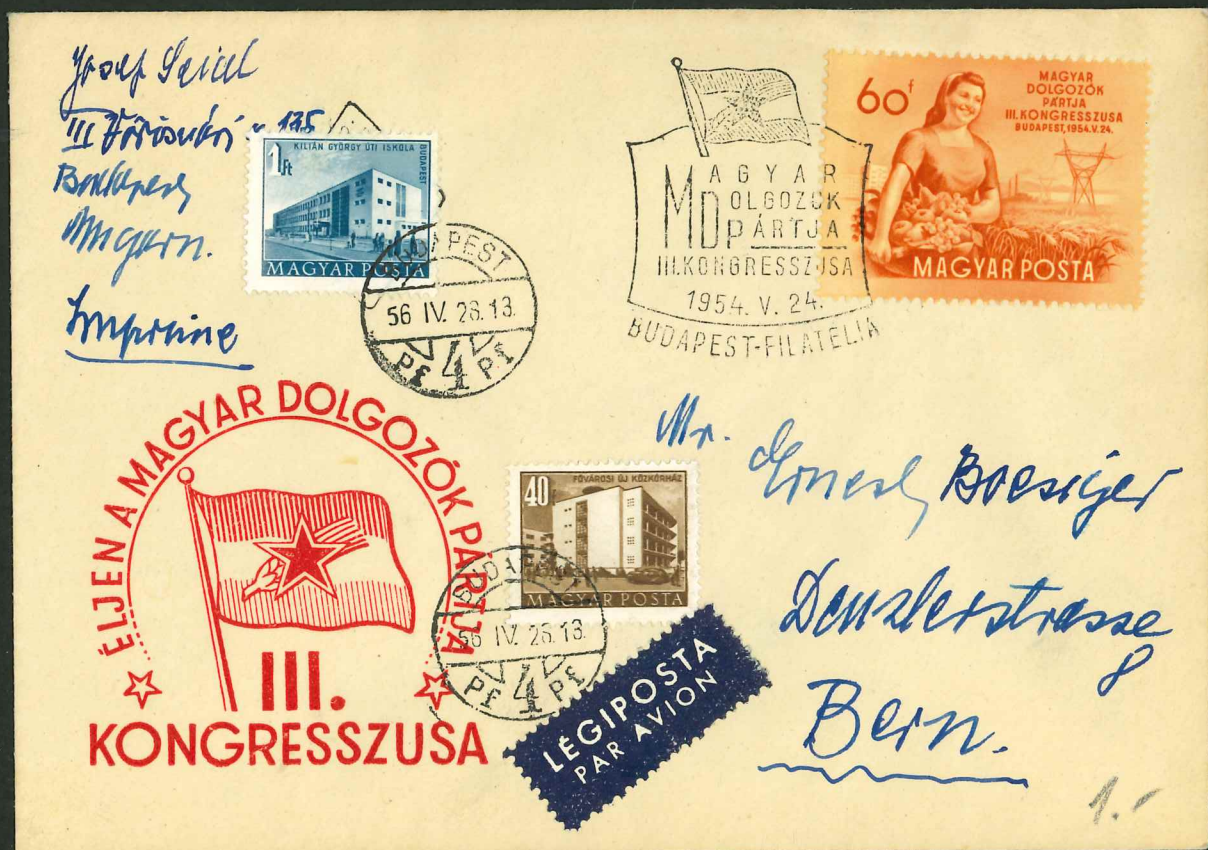 Josef Seidl
III Vörösvári u 135
Budapest
Ungarn.
Imprime
1Ft
KILIÁN GYÖRGY ÚTI ISKOLA
BUDAPEST
MAGYAR POSTA
BUDAPEST
56 IV. 28.13.
4
MAGYAR
DOLGOZÓK
PÁRTJA
III. KONGRESSZUSA
1954. V. 24.
BUDAPEST-FILATELIA
60f
MAGYAR
DOLGOZÓK
PÁRTJA
III. KONGRESSZUSA
BUDAPEST, 1954. V. 24.
MAGYAR POSTA
ÉLJEN A MAGYAR DOLGOZÓK PÁRTJA
III.
KONGRESSZUSA
40
FŐVÁROSI ÚJ KÖZKÓRHÁZ
MAGYAR POSTA
BUDAPEST
56 IV. 28.13.
4
LÉGIPOSTA
PAR AVION
Mr.
Ernest Boesiger
Denzlerstrasse
8
Bern.
1.-